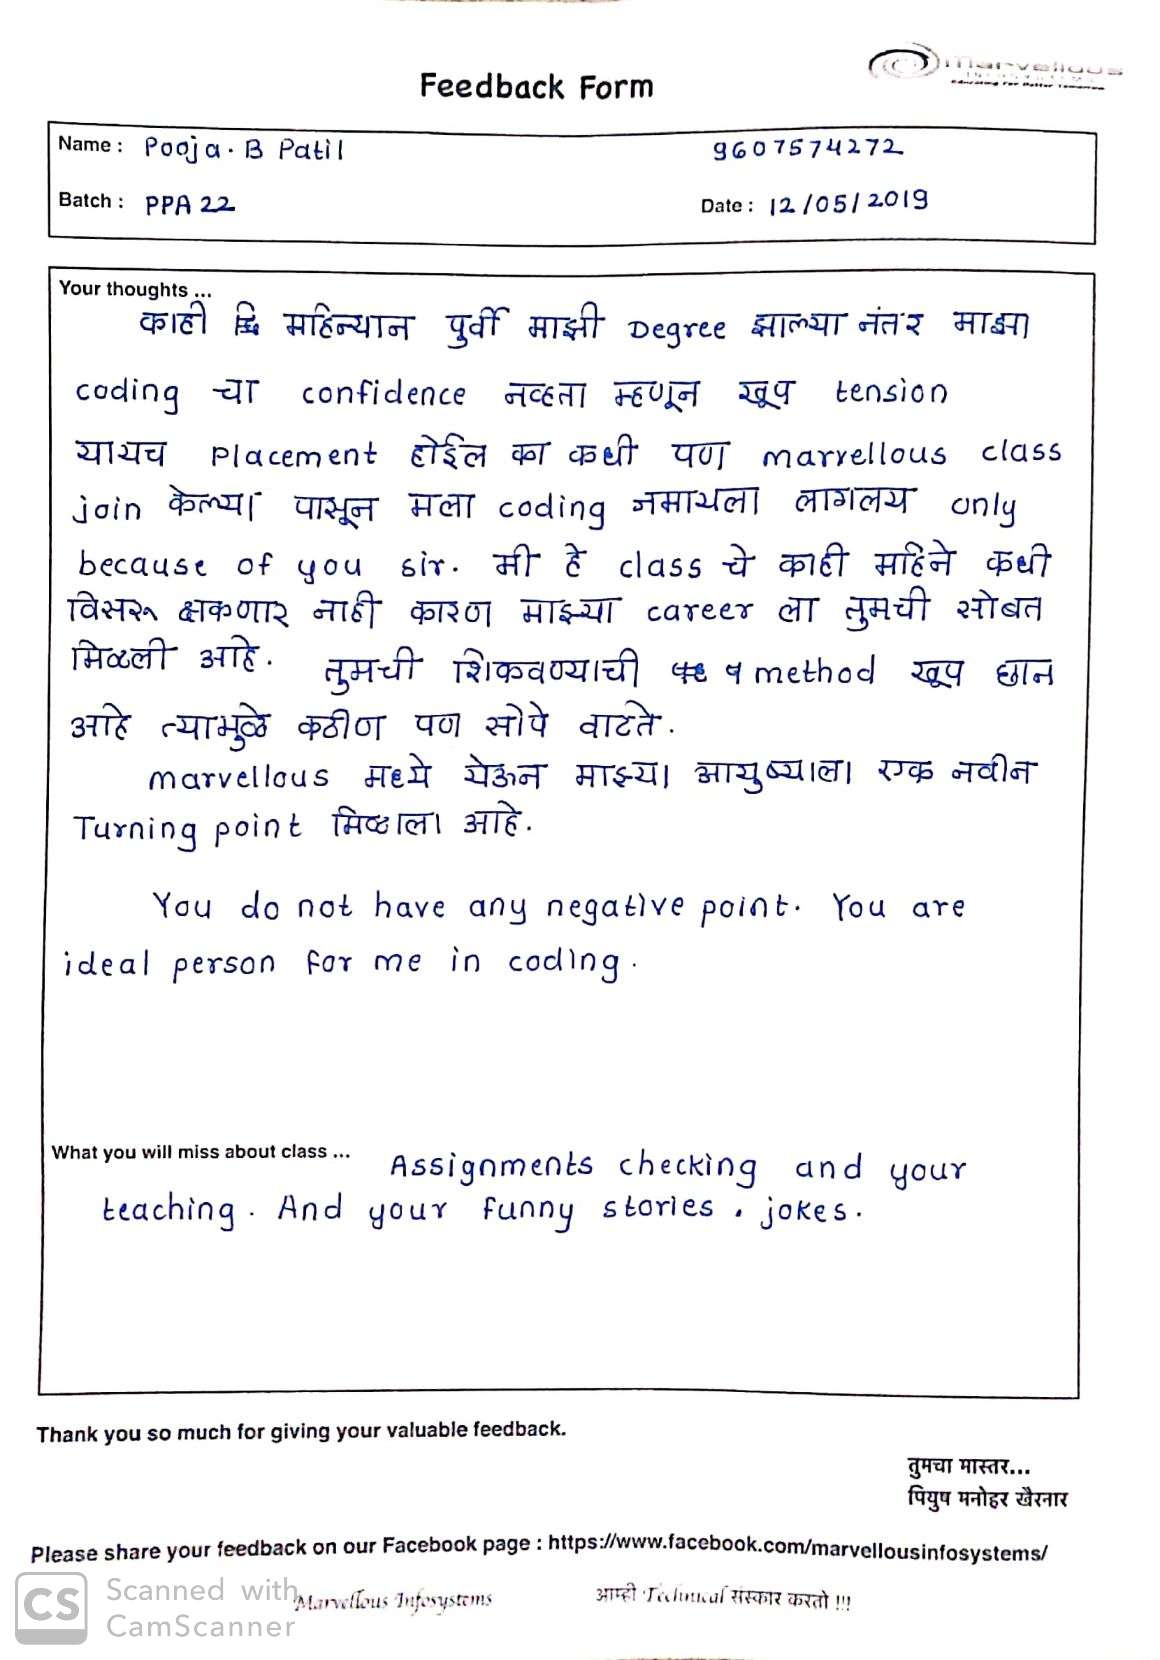 marvellous
Educating For Better Tomorrow
Feedback Form
Name : Pooja . B Patil 9607574272
Batch : PPA 22 Date : 12/05/2019
Your thoughts ...
काही महिन्यान पुर्वी माझी Degree झाल्या नंतर माझा
coding चा confidence नव्हता म्हणून खूप tension
यायच Placement होईल का कधी पण marvellous class
join केल्या पासून मला coding जमायला लागलय only
because of you sir. मी हे class चे काही महिने कधी
विसरू क्षकणार नाही कारण माझ्या career ला तुमची सोबत
मिळली आहे. तुमची शिकवण्याची method खूप छान
आहे त्यामुळे कठीण पण सोपे वाटते.
marvellous मध्ये येऊन माझ्या आयुष्याला एक नवीन
Turning point मिळाला आहे.
You do not have any negative point. You are
ideal person for me in coding.
What you will miss about class ... Assignments checking and your
teaching. And your funny stories . jokes.
Thank you so much for giving your valuable feedback.
तुमचा मास्तर...
पियुष मनोहर खैरनार
Please share your feedback on our Facebook page : https://www.facebook.com/marvellousinfosystems/
Marvellous Infosystems आम्ही Technical संस्कार करतो !!!
CS Scanned with
CamScanner